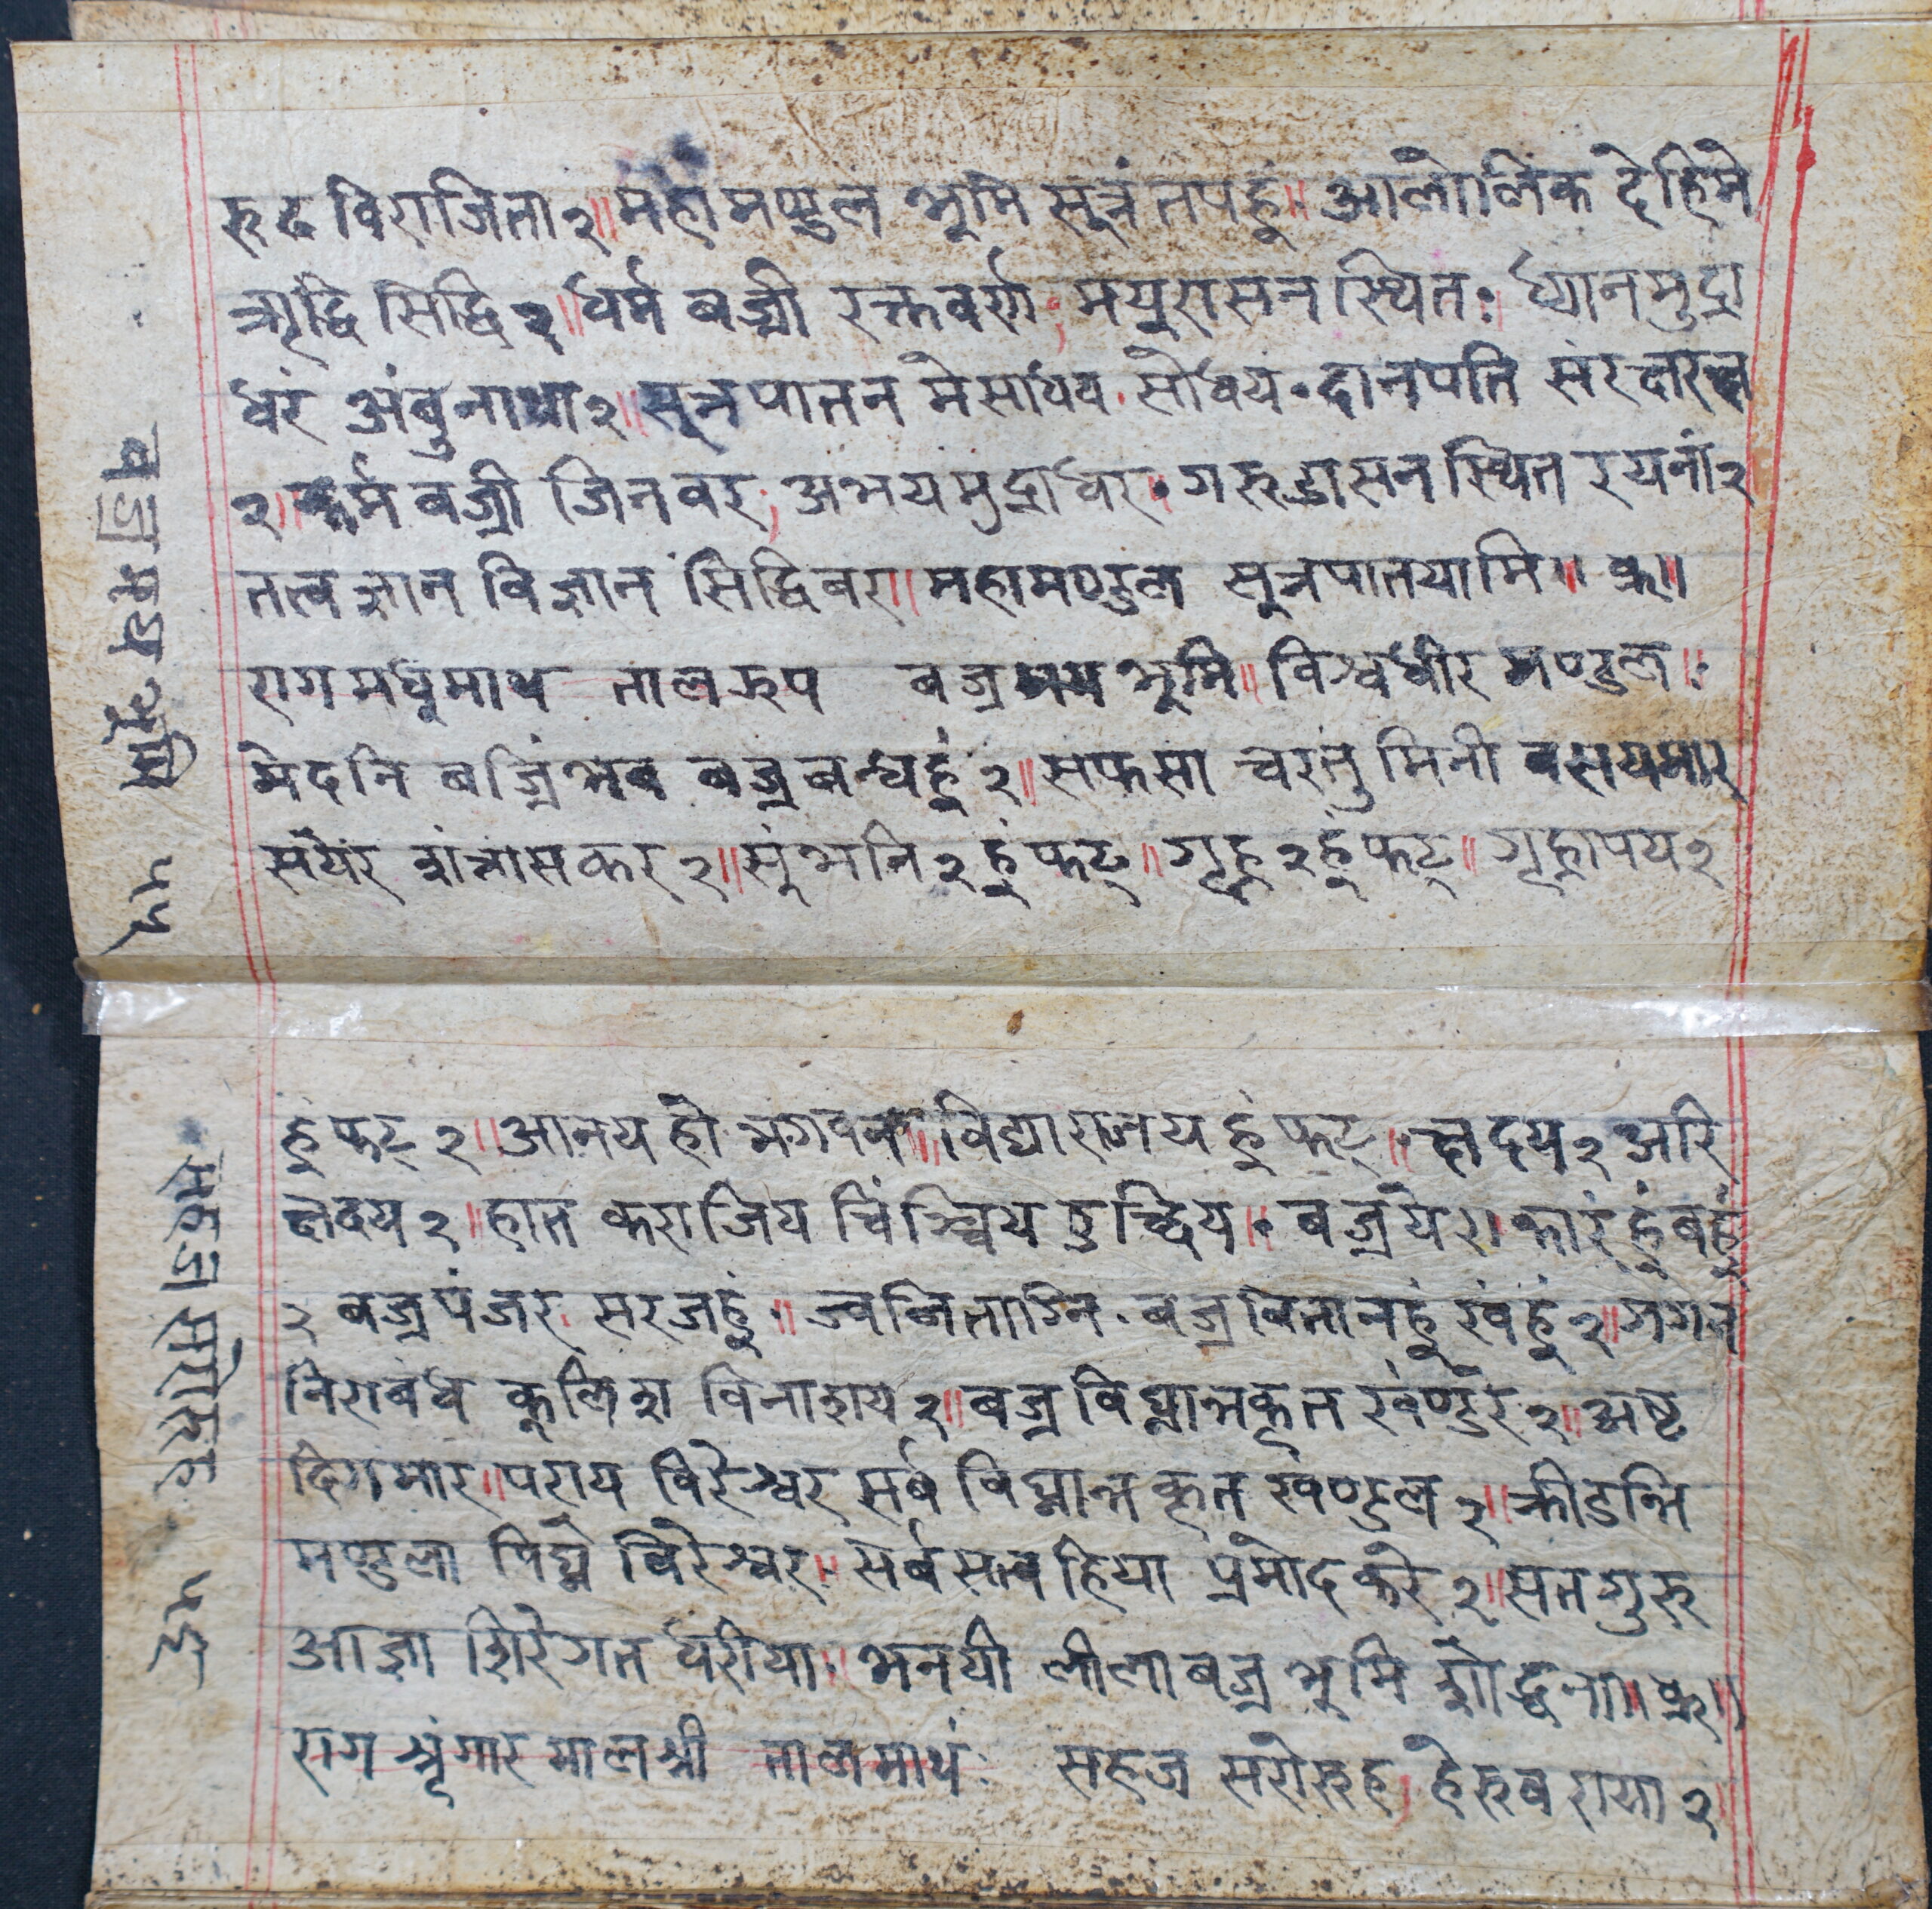 रुढ विराजिता २॥ महामण्डल भुमि सुत्रं तपहुं॥ आलोलिक देहिमे
ऋद्धि सिद्धि २॥ धर्म बज्री रक्तवर्ण मयुरासन स्थित॰ ध्यानमुद्रा
धरं अंबुनाथा २॥ सुत्र पातन मे साधय सोधय॰ दानपति
२॥ कर्म बज्री जिनवर अभयमुद्राधर॰ गरुडासन स्थित रयना २
तत्व ज्ञान विज्ञान सिद्धिवरा॥ महामण्डल सुत्रपातयामि॥ क्र॥
राग मधुमाथ ताल रुप बज्रमय भुमि॥ विश्वधीर मण्डल॥
मेदनि बज्रिंभव बज्रबन्धहुं २॥ सफसा चरतु मिनी वसयमार
सयेर त्रांत्रासकर २॥ सुंभनि २ हुं फट्॥ गृह्न २ हुं फट्॥ गृह्नापय २
बज्रमय भूमि ५५
हुं फट् २॥ आनय हो भगवन॥ विद्याराजय हुं फट्॥ छादय २ अरि
छेदय २॥ हात कराजिय चिंश्चिय बज्रये
२ बज्रपंजर सरजहुं॥ ज्वलिताग्नि॰ बज्रवितानहुं खंहुं २॥ गगन
निराबंध कुलिश विनाशय २॥ बज्र विघ्नान्तकृत खंण्डरे २॥ अष्ट
दिगमार॥ पराय विरेश्वर सर्व विघ्नान्त कृत खंण्डल २॥ क्रीडन्ति
मण्डला विघ्ने विरेश्वर॥ सर्वसत्व हिया प्रमोद करे २॥ सतगुरु
आज्ञा शिरेगत धरीया॥ भनयी लीलाबज्र भुमि शोद्धना॥ क्र॥
राग श्रृंगार मालश्री तालमाथं॰ सहज सरोरुह हेरुवराया २
सहज सरोरुह ५६